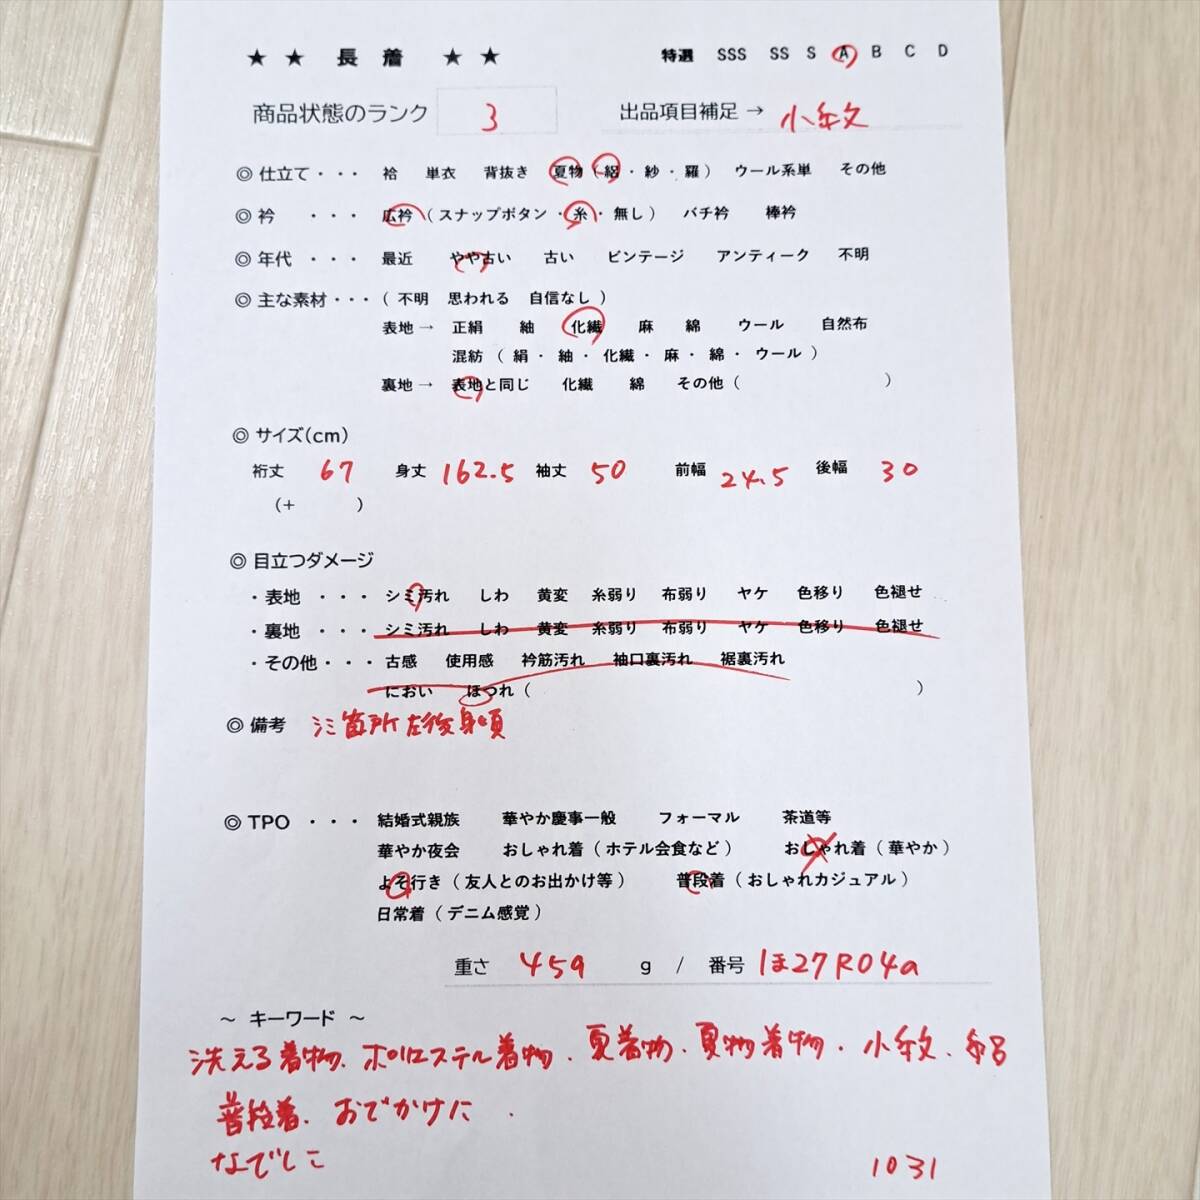 ★ ★ 長 着 ★ ★ 特選 SSS SS S A B C D
商品状態のランク 3 出品項目補足 → 小紋
◎ 仕立て・・・ 袷 単衣 背抜き 夏物（絽・紗・羅） ウール系単 その他
◎ 衿 ・・・ 広衿（スナップボタン・糸・無し） バチ衿 棒衿
◎ 年代 ・・・ 最近 やや古い 古い ビンテージ アンティーク 不明
◎ 主な素材・・・（ 不明 思われる 自信なし ）
表地 → 正絹 紬 化繊 麻 綿 ウール 自然布
混紡（ 絹・紬・化繊・麻・綿・ウール ）
裏地 → 表地と同じ 化繊 綿 その他（ ）
◎ サイズ(cm)
裄丈 67 身丈 162.5 袖丈 50 前幅 24.5 後幅 30
（+ ）
◎ 目立つダメージ
・表地 ・・・ シミ汚れ しわ 黄変 糸弱り 布弱り ヤケ 色移り 色褪せ
・裏地 ・・・ シミ汚れ しわ 黄変 糸弱り 布弱り ヤケ 色移り 色褪せ
・その他・・・ 古感 使用感 衿筋汚れ 袖口裏汚れ 裾裏汚れ
におい ほつれ（ ）
◎ 備考 シミ箇所 左後身頃
◎ TPO ・・・ 結婚式親族 華やか慶事一般 フォーマル 茶道等
華やか夜会 おしゃれ着（ホテル会食など） おしゃれ着（華やか）
よそ行き（友人とのお出かけ等） 普段着（おしゃれカジュアル）
日常着（デニム感覚）
重さ 459 g / 番号 ほ27R04a
～ キーワード ～
洗える着物、ポリエステル着物、夏着物、夏物着物、小紋、絽
普段着、おでかけに、
なでしこ
1031